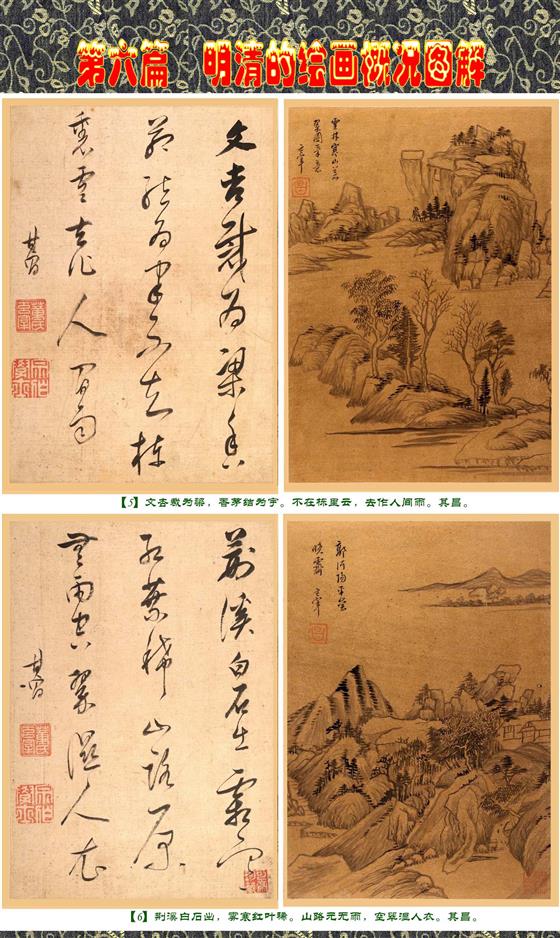 第六篇 明清的绘画概况图解
文杏裁为梁香
茅结为宇不知栋
裏雲去作人间雨
其昌
玄宰
【5】文杏裁为梁，香茅结为宇。不在栋里云，去作人间雨。其昌。
荆溪白石出
红葉稀山路原
無雨空翠濕人衣
其昌
郭河陽
玄宰
【6】荆溪白石出，雾寒红叶稀。山路元无雨，空翠湿人衣。其昌。